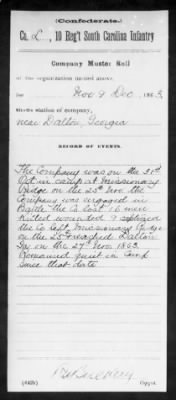 (Confederate.)
Co. L, 10 Reg't South Carolina Infantry
Company Muster Roll
of the organization named above,
for Nov & Dec, 1863.
Station of company,
near Dalton, Georgia
RECORD OF EVENTS.
The Company was on the 31st
Oct in camp at Missionary
Ridge on the 25th Nov the
Company was engaged in
Battle the Co lost 16 men
killed wounded & captured
the Co left Missionary Ridge
on the 25th reached Dalton
Ga on the 27th Nov 1863.
Remained quiet in Camp
Since that date
(642)
Copyist.